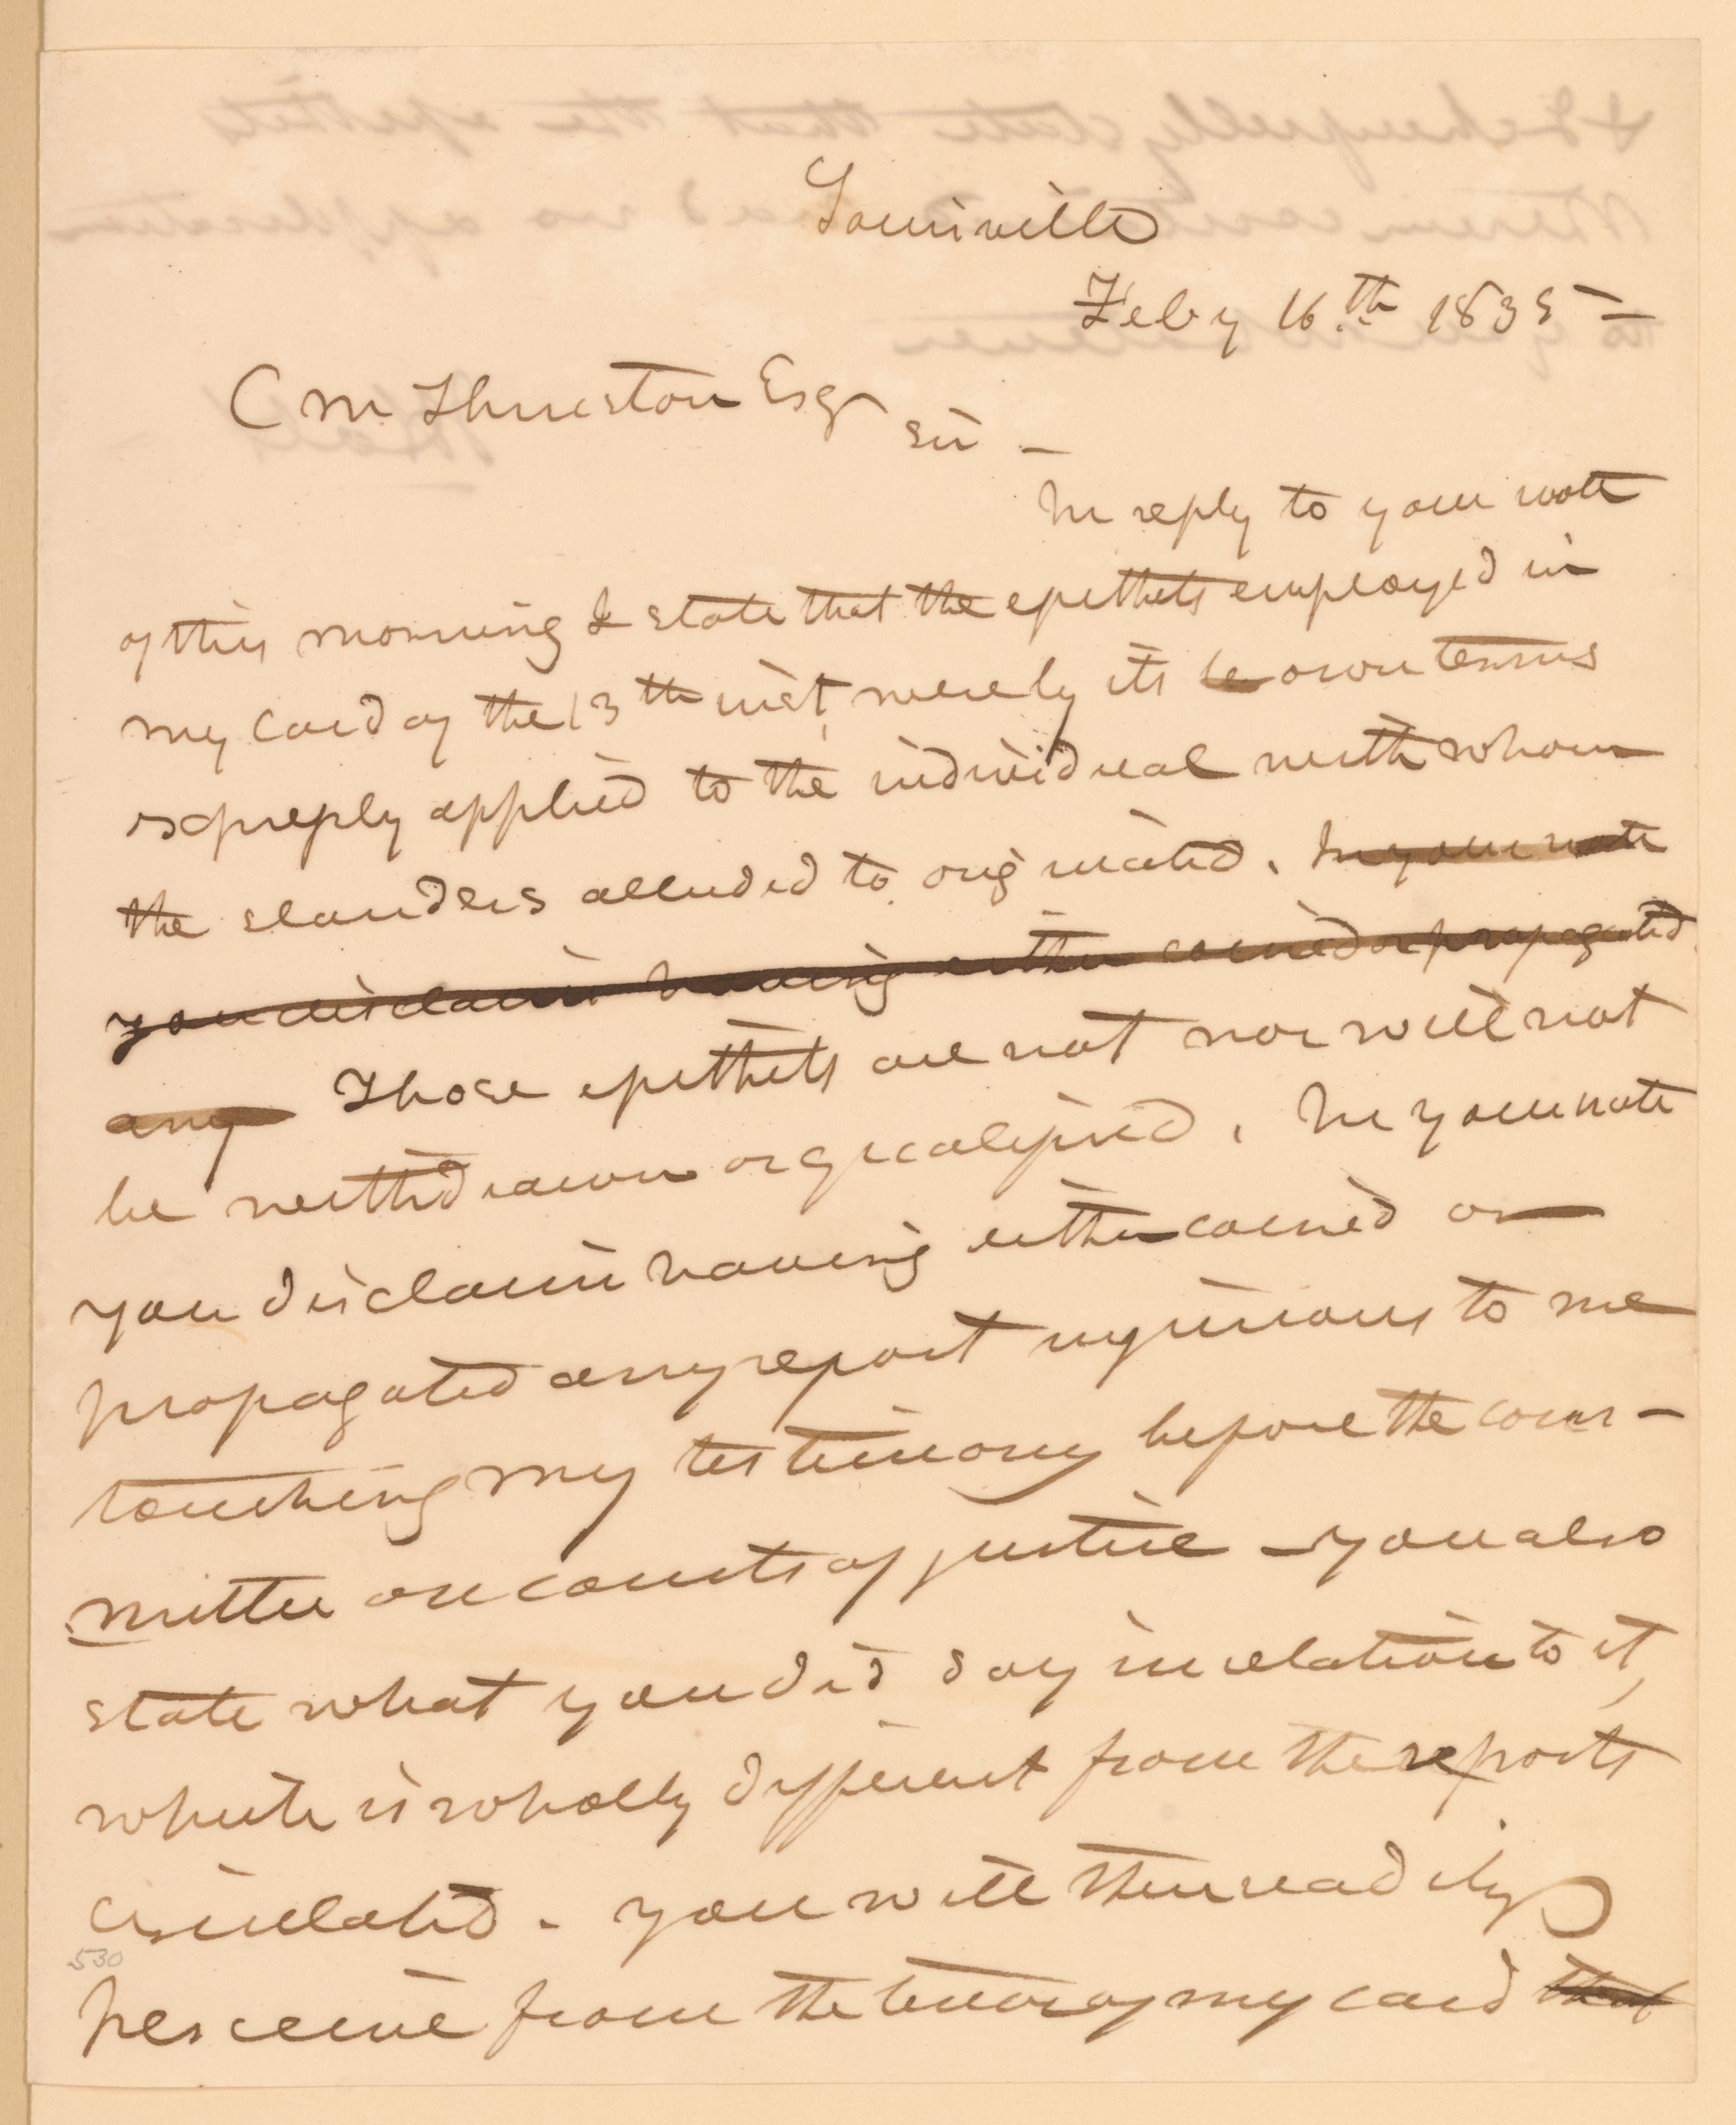 Louisville
Feby 16.th 1835 —
C M Thruston Esqr
Sir —
In reply to your note
of this morning I state that the epithets employed in
my card of the 13th inst, merely its own terms
expressly applied to the individual with whom
the slanders alluded to originated. In your note
you disclaim having either coined or propagated
any Those epithets are not nor will not
be withdrawn or qualified. In your note
you disclaim having either coined or
propagated any report injurious to me
touching my testimony before the com-
mittee on courts of justice — you also
state what you did say in relation to it,
which is wholly different from the reports
circulated. you will then readily
perceive from the tenor of my card that
530